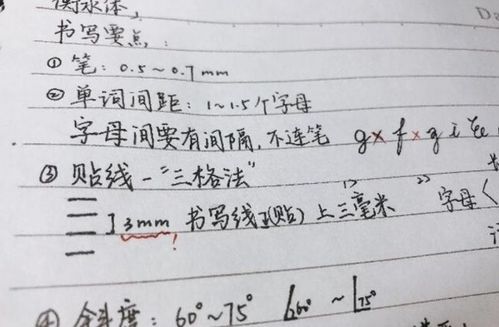 衡水体,
书写要点:
① 笔: 0.5~0.7mm
② 单词间距: 1~1.5个字母
字母间要有间隔, 不连笔 g× f× g i
③ 贴线 - "三格法"
3mm 书写线(贴)上三毫米 字母<
④ 斜度: 60°~75° 60° ~ 75°